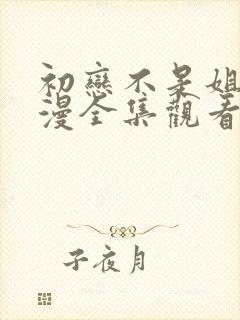 初戀不呆姐
漫全集觀看
子夜月